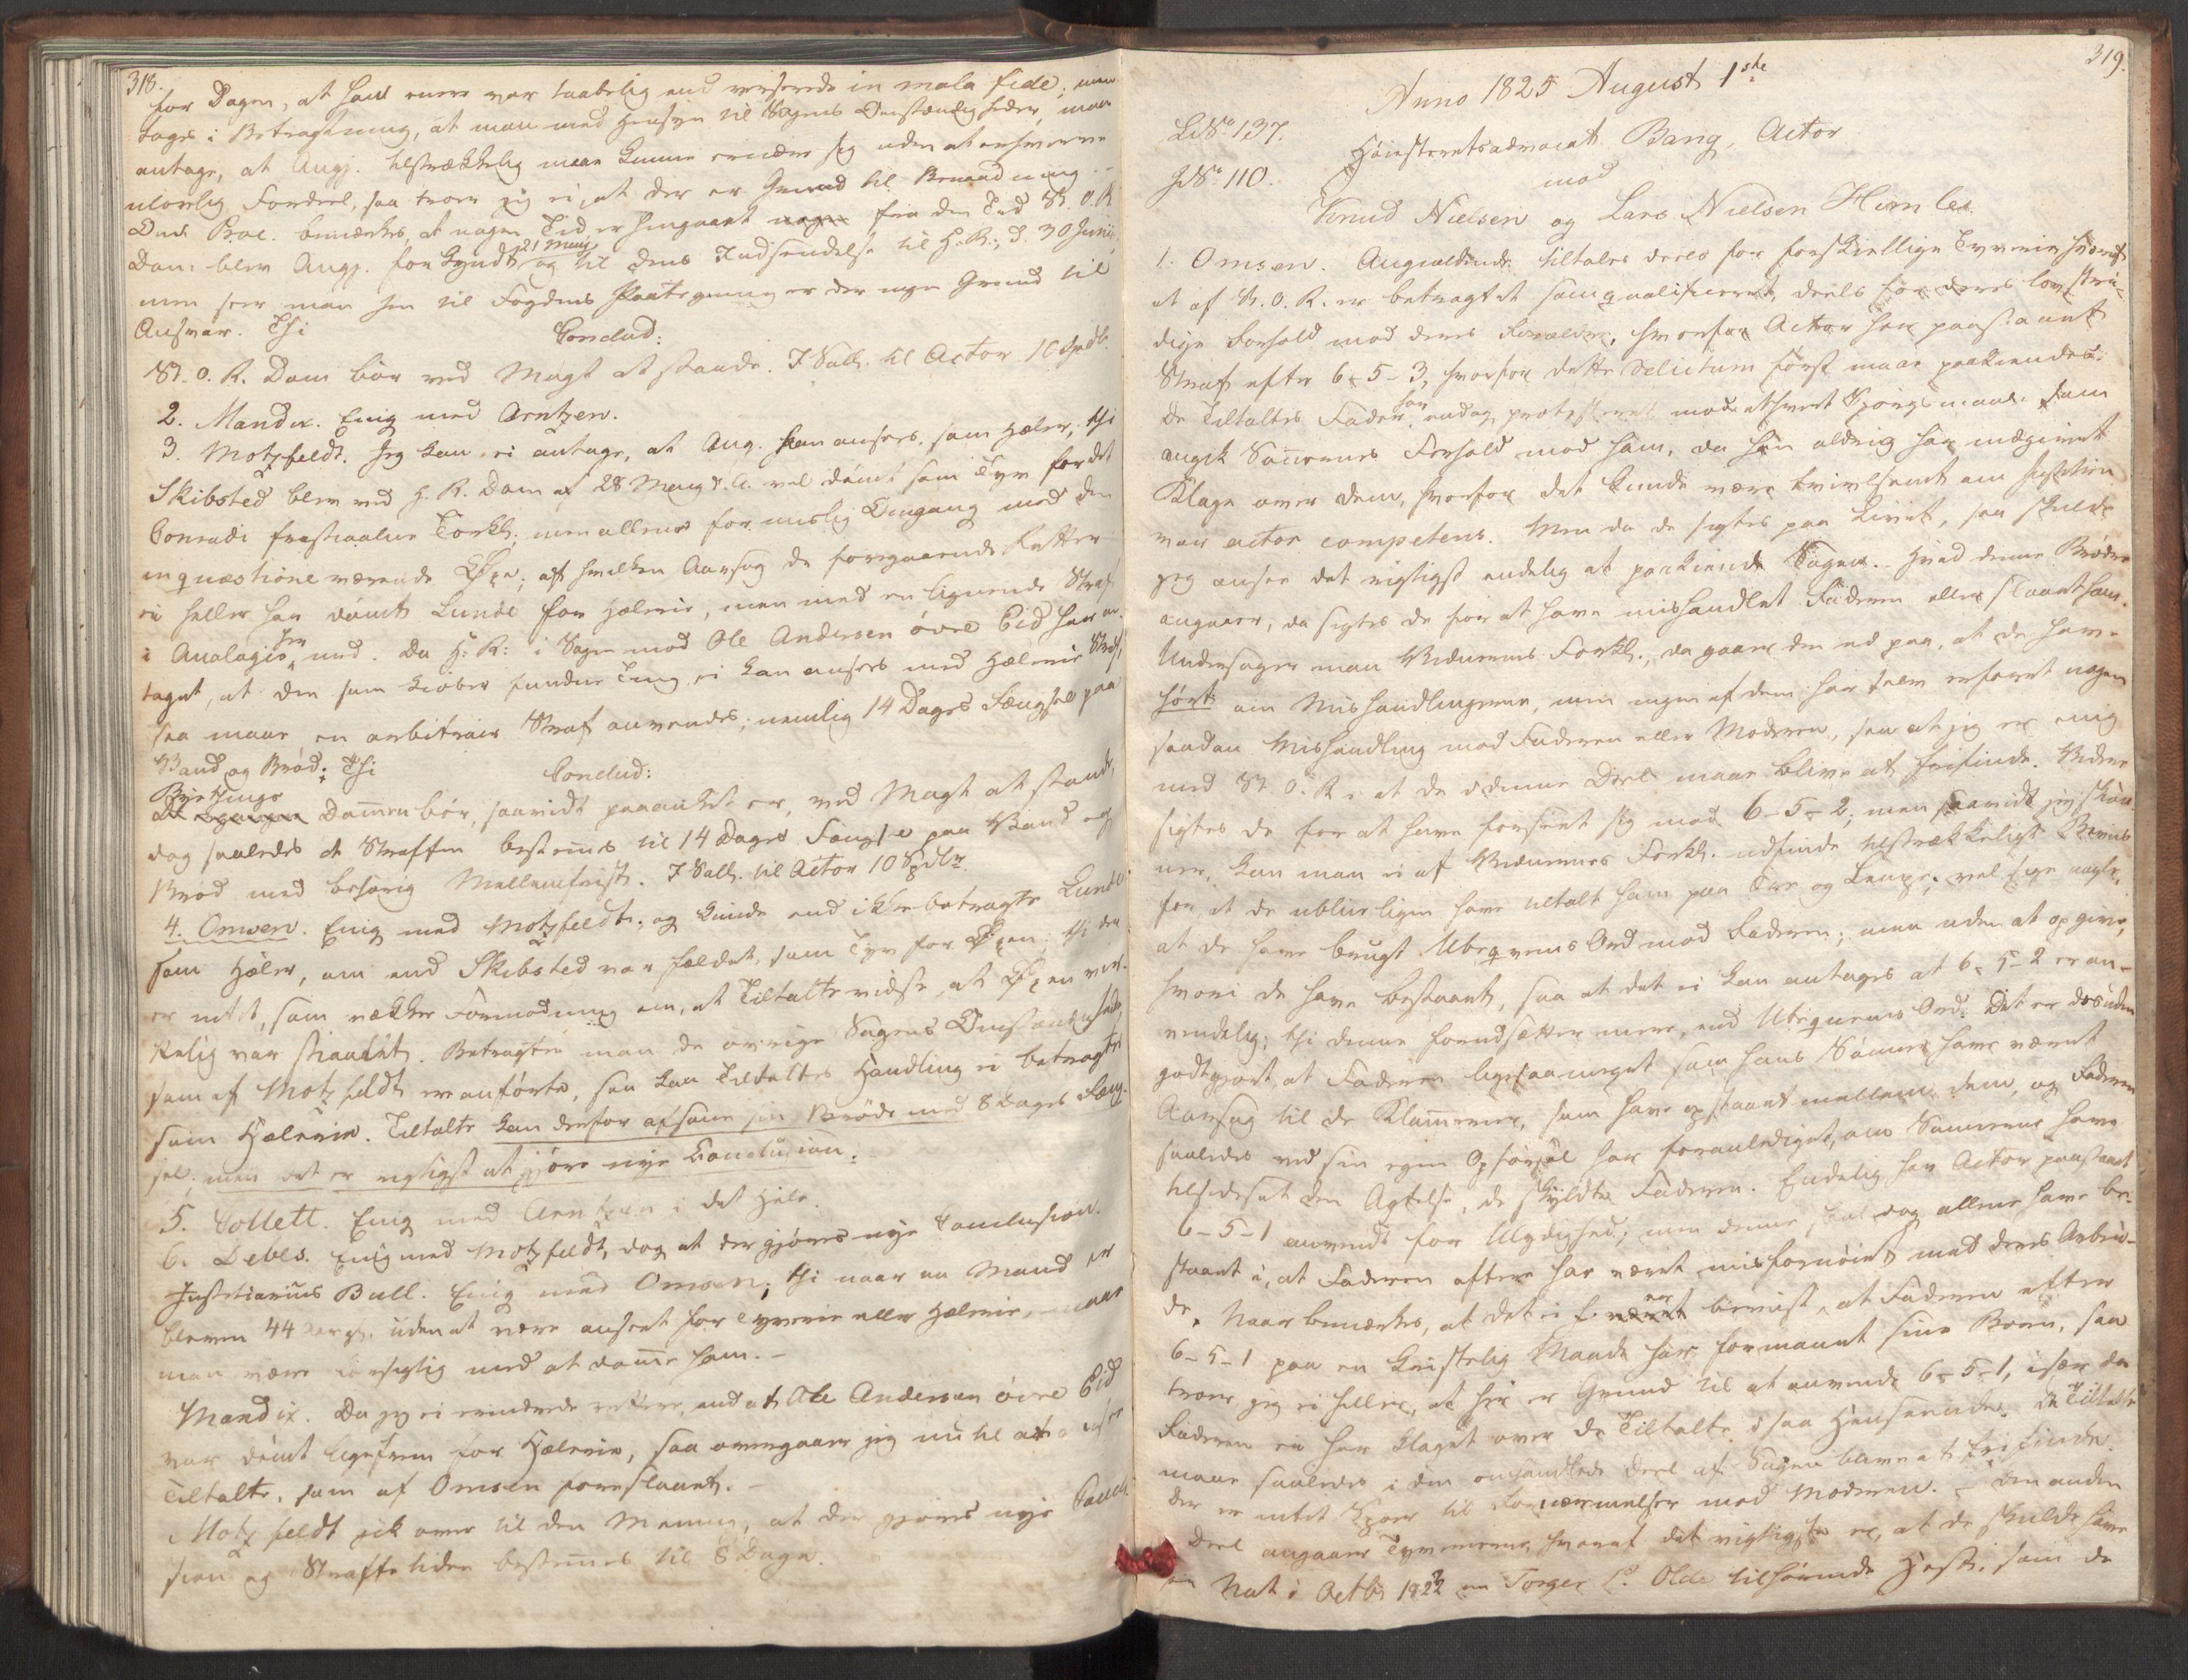 318.
for Dagen, at hans svar var taabelig end verserede in mala fide; men
tages i Betragtning, at man med Hensyn til Sagens Omstændigheder, maa
antage, at Angj. tilstrækkelig maae kunne ernære sig uden at erhverve
ulovlig Fordeel, saa troer jeg ei, at der er Grund til Benaadning. -
Ons Proc. bemærkes, at nogen Tid er hengaaet fra den Tid St. O. R.
Dom blev Angj. forkyndt 21 Maij og til dens Indsendelse til H. R., d. 30 Junii,
men seer man hen til Fogdens Paategning er der ingen Grund til
Ansvar. Thi
Conclud:
St. O. R. Dom bør ved Magt at stande. I Sall. til Actor 10 Spdlr.
2. Mandix. Enig med Arntzen.
3. Motzfeldt. Jeg kan ei antage, at Ang. kan ansees som Hæler, thi
Skibsted blev ved H. R. Dom af 28 Maij d. A. vel dømt som Tyv for det
Conradi frastjaalne Tørkl., men allene for mislig Omgang med den
in quæstione værende ; af hvilken Aarsag de foregaaende Retter
ei heller har dømt Lunde for Hælerie, men med en lignende Straf
i Analogie med. Da H. R. i Sagen mod Ole Andersen øvre Eid har an-
taget, at den som kiøber fundne Ting ei kan ansees med Hælerie Straf,
saa maae en arbitrair Straf anvendes, nemlig 14 Dages Fængsel paa
Vand og Brød; Thi
Conclud:
Byetingets Dommen bør, saavidt paaanket er, ved Magt at stande,
dog saaledes at Straffen bestemmes til 14 Dages Fængsel paa Vand og
Brød med behørig Mellemfrist. I Sall. til Actor 10 Spdlr.
4. Omsen. Enig med Motzfeldt, og kunde end ikke betragte Lunde
som Hæler, om end Skibsted var fældet som Tyv for ; thi der
er intet, som vækker Formodning om, at Tiltalte vidste, at vir-
kelig var stiaalet. Betragter man de øvrige Sagens Omstændigheder,
som af Motzfeldt ere anførte, saa kan Tiltaltes Handling ei betragtes
som Hælerie. Tiltalte kan derfor afsone sin Brøde med 8 Dages Fæng-
sel, men det er rigtigst at gjøre nye Conclusion.
5. Collett. Enig med Arntzen i det Hele.
6. Debes. Enig med Motzfeldt, dog at der gjøres nye Conclusion.
Justitiarius Bull. Enig med Omsen; thi naar en Mand er
bleven 44 Aar gl. uden at være anseet for Tyverie eller Hælerie, maae
man være forsigtig med at dømme ham. -
Mandix. Da jeg ei erindrede rettere, end at Ole Andersen øvre Eid
var dømt ligefrem for Hælerie, saa overgaaer jeg nu til at ansee
Tiltalte, som af Omsen foreslaaet. -
Motzfeldt gik over til den Mening, at der gjøres nye Conclu-
sion og Straffetiden bestemmes til 8 Dage.
319.
Anno 1825 August 1ste
L. No. 137.
Høiesteretsadvocat Bang, Actor
J. No. 110.
mod
Knud Nielsen og Lars Nielsen Himle
1. Omsen. Angjældende tiltales deels for forskiellige Tyverier hvoraf
et af St. O. R. er betragtet som qualificeret, deels for deres lovstri-
dige Forhold mod deres Forældre, hvorfor Actor har paastaaet
Straf efter 6-5-3, hvorfor dette Delictum først maae paakiendes.
De Tiltaltes Fader har endog protesteret mod ethvert Spørgsmaal, som
angik Sønnernes Forhold mod ham, da han aldrig har indgivet
Klage over dem, hvorfor det kunde være tvivlsomt om Justitien
var actor competens. Men da de sigtes paa Livet, saa skulde
jeg ansee det rigtigst endelig at paakiende Sagen. Hvad denne Brøde
angaaer, da sigtes de for at have mishandlet Faderen eller slaaet ham.
Undersøger man Vidnernes Forkl., da gaaer den ud paa, at de have
hørt om Mishandlingerne, men ingen af dem har selv erfaret nogen
saadan Mishandling mod Faderen eller Moderen, saa at jeg er enig
med St. O. R. i at de i denne Deel maae blive at frifinde. Videre
sigtes de for at have forseet sig mod 6-5-2; men saavidt jeg skiøn-
ner, kan man ei af Vidnernes Forkl. udfinde tilstrækkeligt Beviis
for, at de ubluelige have tiltalt ham paa Ære og Lempe; vel sige nogle,
at de have brugt Ubeqvems Ord mod Faderen; men uden at opgive,
hvori de have bestaaet, saa at det ei kan antages at 6-5-2 er an-
vendelig; thi denne forudsætter mere, end Ubeqvems Ord. Det er desuden
godtgjort, at Faderen ligesaameget som hans Sønner have været
Aarsag til de Klammerier, som have opstaaet mellem dem, og Faderen
saaledes ved sin egen Opførsel har foranlediget, om Sønnerne have
tilsidesat den Agtelse, de skyldte Faderen. Endelig har Actor paastaaet
6-5-1 anvendt for Ulydighed; men denne skal dog allene have be-
staaet i, at Faderen oftere har været misfornøiet med deres Arbei-
de. Naar bemærkes, at det ei er beviist, at Faderen efter
6-5-1 paa en christelig Maade har formanet sine Børn, saa
troer jeg ei heller, at her er Grund til at anvende 6-5-1, især da
Faderen ei har klaget over de Tiltalte i saa Henseende. De Tiltalte
maae saaledes i den omhandlede Deel af Sagen blive at frifinde.
Der er intet Spor til Fornærmelser mod Moderen. - Den anden
Deel angaaer Tyverierne, hvoraf det vigtigste er, at de skulde have
en Nat i Octbr 1822 en Torger Olde tilhørende Hest, som de